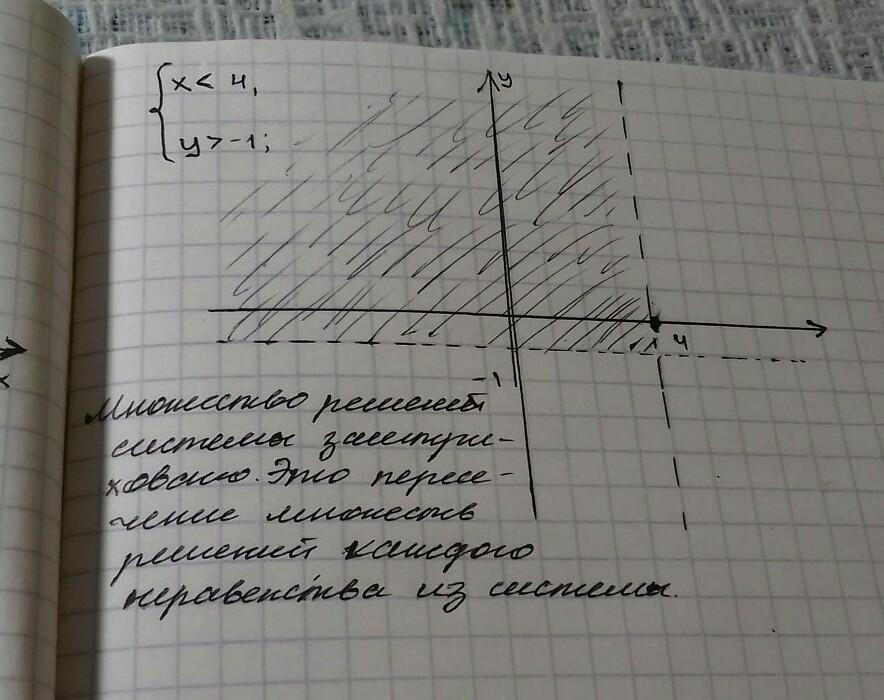 x < 4,
y > -1;
y
x 4
-1
x
Множество решений
системы заштри-
ховано. Это пересе-
чение множеств
решений каждого
неравенства из системы.